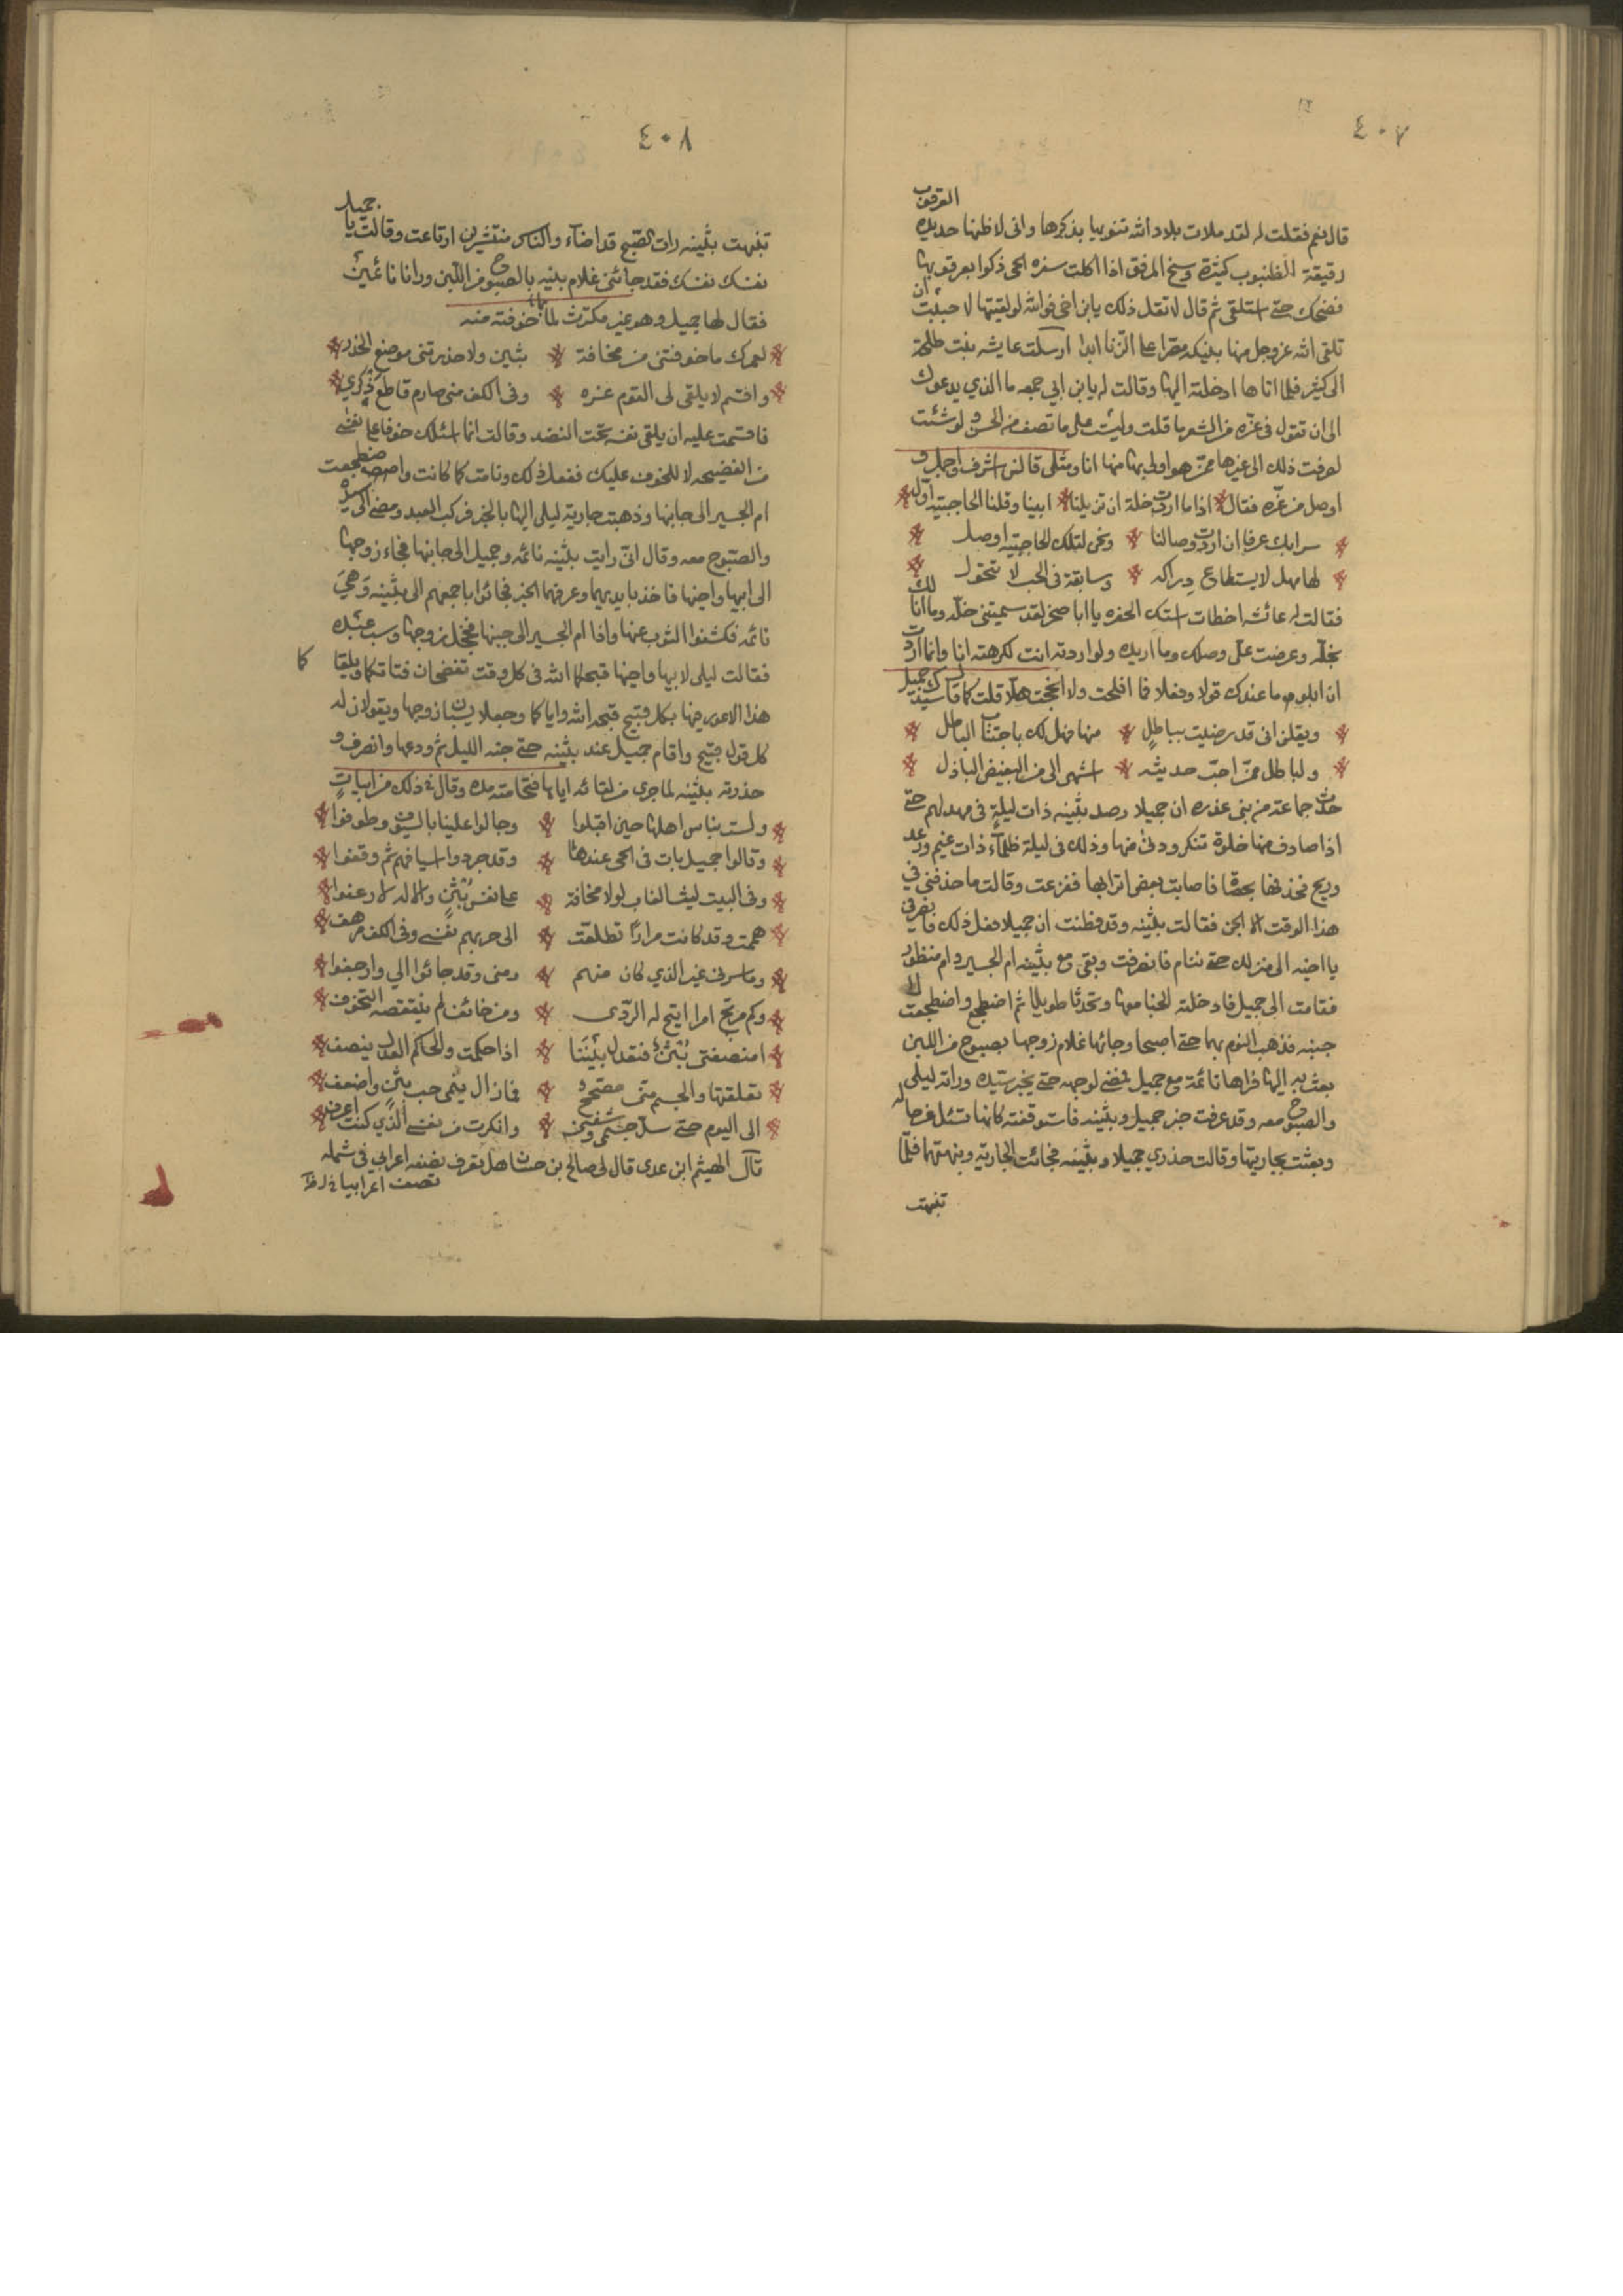 ٤٠٧
قال نعم فقلت له لقد ملات بلاد الله تنويها بذكرها وانى لاظنها حديدة العرقوب
دقيقة الظنبوب كثيرة وسخ المرفق اذا اكلت سفره الحى ذكوا بعرقوبها
فضحك حتى استلقى ثم قال لا تقل ذلك يابن اخى فوالله لو لقيتها لاحببت ان
تلقى الله عز وجل منها بنيكه مصرا على الزنا ابدا ارسلت عايشه بنت طلحة
الى كثير فلما اتاها ادخلته اليها وقالت له يابن ابي جمعه ما الذي يدعوك
الى ان تقول فى عزه من الشعر ما قلت وليست على ما تصف من الحسن ولو شئت
لصرفت ذلك الى غيرها ممن هو اولى بها منها انا ومثلى فانى اشرف واجمل و
اوصل من عزه فقال اذا ما ارادت خلة ان تزيلنا ابينا وقلنا الحاجبية اول
سرابك عرفا ان اردت وصالنا ونحن لتلك الحاجبيه اوصل
لها مهل لا يستطاع دراكه وسابقة فى الحب لا تتحول
فقالت له عائشه اخطات استك الحفره يا ابا صخر لقد سميتنى خله وما انا لك
بخله وعرضت على وصلك وما اريده ولو اردته انت لكرهته انا وانما اردت
ان ابلو ما عندك قولا وفعلا فما افلحت ولا انجحت هلا قلت كما قال سيدك جميل
ويقلن انى قد رضيت بباطلٍ منها فهل لك باجتناب الباطل
ولباطل ممن احبّ حديثه اشهى الى من البغيض الباذل
حدث جماعة من بنى عذره ان جميلا رصد بثينه ذات ليلة فى مهد لهم حتى
اذا صادف منها خلوة تنكر ودنى منها وذلك فى ليلة ظلماء ذات غيم ورعد
وريح فحذفها بحصاة فاصابت بعض اترابها ففزعت وقالت ما حذفنى في
هذا الوقت الا الجن فقالت بثينه وقد فطنت ان جميلا فعل ذلك فانصرفى
يا اخيه الى منزلك حتى ننام فانصرفت وبقى مع بثينه ام الجسير وام منظور
فقامت الى جميل فادخلته الخبا معها وتحدثا طويلا ثم اضطجع واضطجعت الى
جنبه فذهب النوم بهما حتى اصبحا وجائها غلام زوجها بصبوح من اللبن
بعث به اليها فراها نائمة مع جميل فمضى لوجهه حتى يخبر سيده وراته ليلى
والصبوح معه وقد عرفت خبر جميل وبثينه فاستوقفته كانها تسئله عن حاله
وبعثت بجاريتها وقالت حذري جميلا وبثينه فجائت الجارية ونبهتهما فلما
تنبهت
٤٠٨
تنبهت بثينه رات الصبح قد اضاء والناس منتشرين ارتاعت وقالت يا جميل
نفسك نفسك فقد جائنى غلام بنيه بالصبوح من اللبن ورانا نائمين
فقال لها جميل وهو غير مكترث لما خوفته منه
لعمرك ما خوفتنى من مخافة بثين ولا حذرتنى موضع الحذر
واقسم لا يلقى لى القوم غره وفى الكف منى صارم قاطع ذكري
فاقسمت عليه ان يلقى نفسه تحت النضد وقالت انما اسئلك خوفا على نفسى
من الفضيحه لا للخوف عليك ففعل ذلك ونامت كما كانت واضطجعت
ام الجسير الى جانبها وذهبت جارية ليلى اليها بالخبر فركب العبد ومضى الى سيده
والصبوح معه وقال انى رايت بثينه نائمه وجميل الى جانبها فجاء زوجها
الى ابيها واخيها فاخذ بايديهما وعرفهما الخبر فجائوا باجمعهم الى بثينه وَهِيَ
نائمه فكشفوا الثوب عنها واذا ام الجسير الى جنبها فخجل زوجها وسب عبده
فقالت ليلى لابيها واخيها قبحكما الله فى كل وقت تفضحان فتاتكما ويلقا كما
هذا الاعور فيها بكل قبيح قبحه الله واياكما وجعلا يسبان زوجها ويقولان له
كل قول قبيح واقام جميل عند بثينه حتى جنه الليل ثم ودعها وانصرف و
حذرته بثينه لما جرى من لقائه اياها فتحامته مده وقال فى ذلك من ابياتٍ
ولست بناس اهلها حين اقبلوا وجالوا علينا بالسيوف وطوفوا
وقالوا جميل بات فى الحى عندها وقد جردوا اسيافهم ثم وقفوا
وفى البيت ليث الغاب لولا مخافة على نفس بُثنٍ والاله لارعفوا
هممت وقد كانت مرارًا تطلعت الى حربهم نفسى وفى الكف مرهف
وما سرنى غير الذي كان منهم ومنى وقد جائوا الي وارجفوا
وكم مرتج امرا اتيح له الردى ومن خائف لم ينتقصه التخوف
امنصفتى بُثنٌ فتعدل بيننا اذا حكمت والحاكم العدل ينصف
تعلقتها والجسم منى مصحح فما زال ينمى حب بثنٍ واضعف
الى اليوم حتى سل جسمى وشفنى وانكرت من نفسى الذي كنت اعرف
قال الهيثم ابن عدى قال لى صالح بن حسان هل تعرف نصفه اعرابي فى شمله
نصف اعرابيا